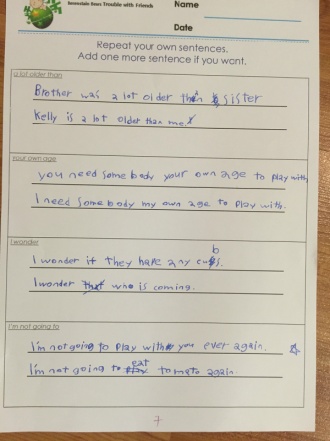 Berenstain Bears Trouble with Friends
Name
Date
Repeat your own sentences.
Add one more sentence if you want.
a lot older than
Brother was a lot older than sister
Kelly is a lot older than me
your own age
you need somebody your own age to play with
I need somebody my own age to play with.
I wonder
I wonder if they have any cubs.
I wonder who is coming.
I'm not going to
I'm not going to play with you ever again.
I'm not going to eat tomato again.
7